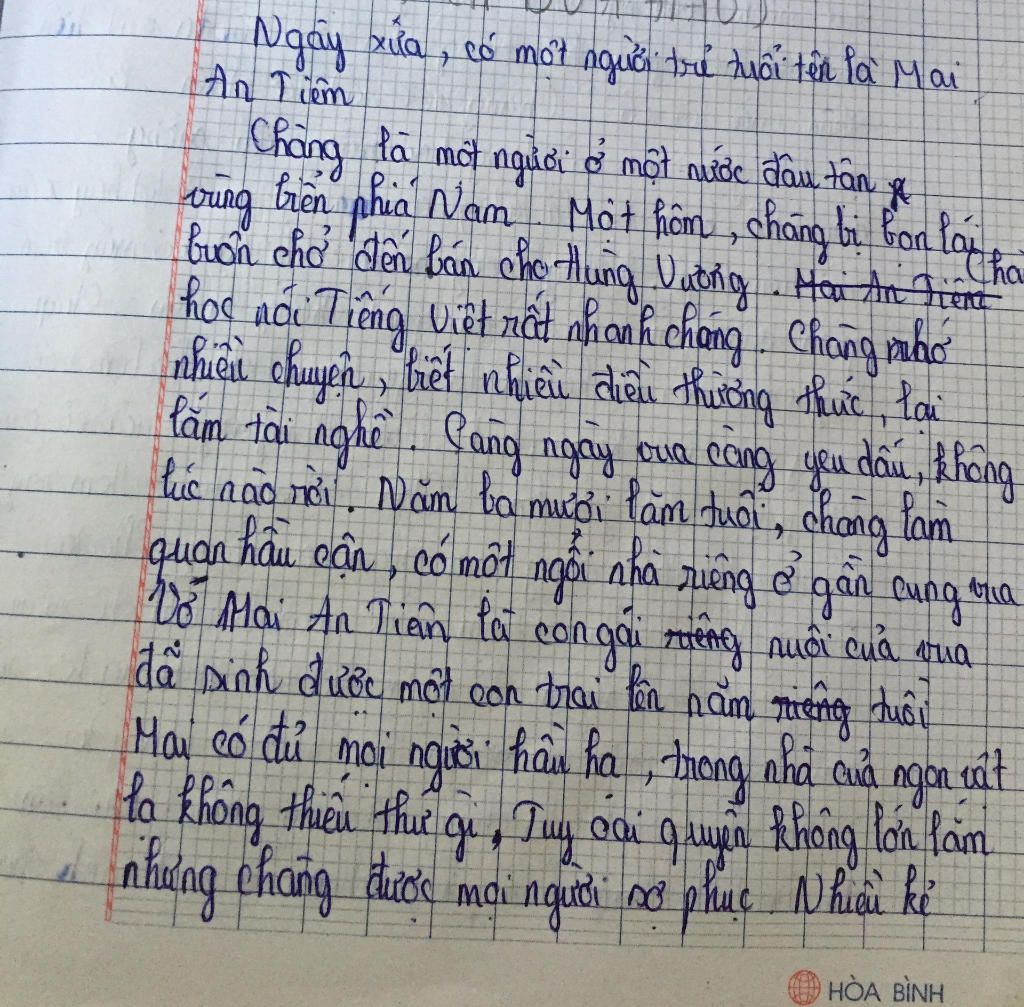 Ngày xửa, có một người trẻ tuổi tên là Mai
An Tiêm
Chàng là một người ở một nước đâu tân
vùng biển phía Nam. Một hôm, chàng bị bọn lái
buôn chở đến bán cho Hùng Vương. Mai An Tiêm Chà
học nói Tiếng Việt rất nhanh chóng. Chàng nhớ
nhiều chuyện, biết nhiều điều thường thức, lại
lắm tài nghề. Càng ngày vua càng yêu dấu, không
lúc nào rời. Năm ba mươi lăm tuổi, chàng làm
quan hầu cận, có một ngôi nhà riêng ở gần cung vua
Vợ Mai An Tiên là con gái riêng nuôi của vua
đã sinh được một con trai lên năm riêng tuổi
Mai có đủ mọi người hầu hạ, trong nhà của ngon vật
lạ không thiếu thứ gì, Tuy oai quyền không lớn lắm
nhưng chàng được mọi người sợ phục. Nhiều kẻ
HÒA BÌNH